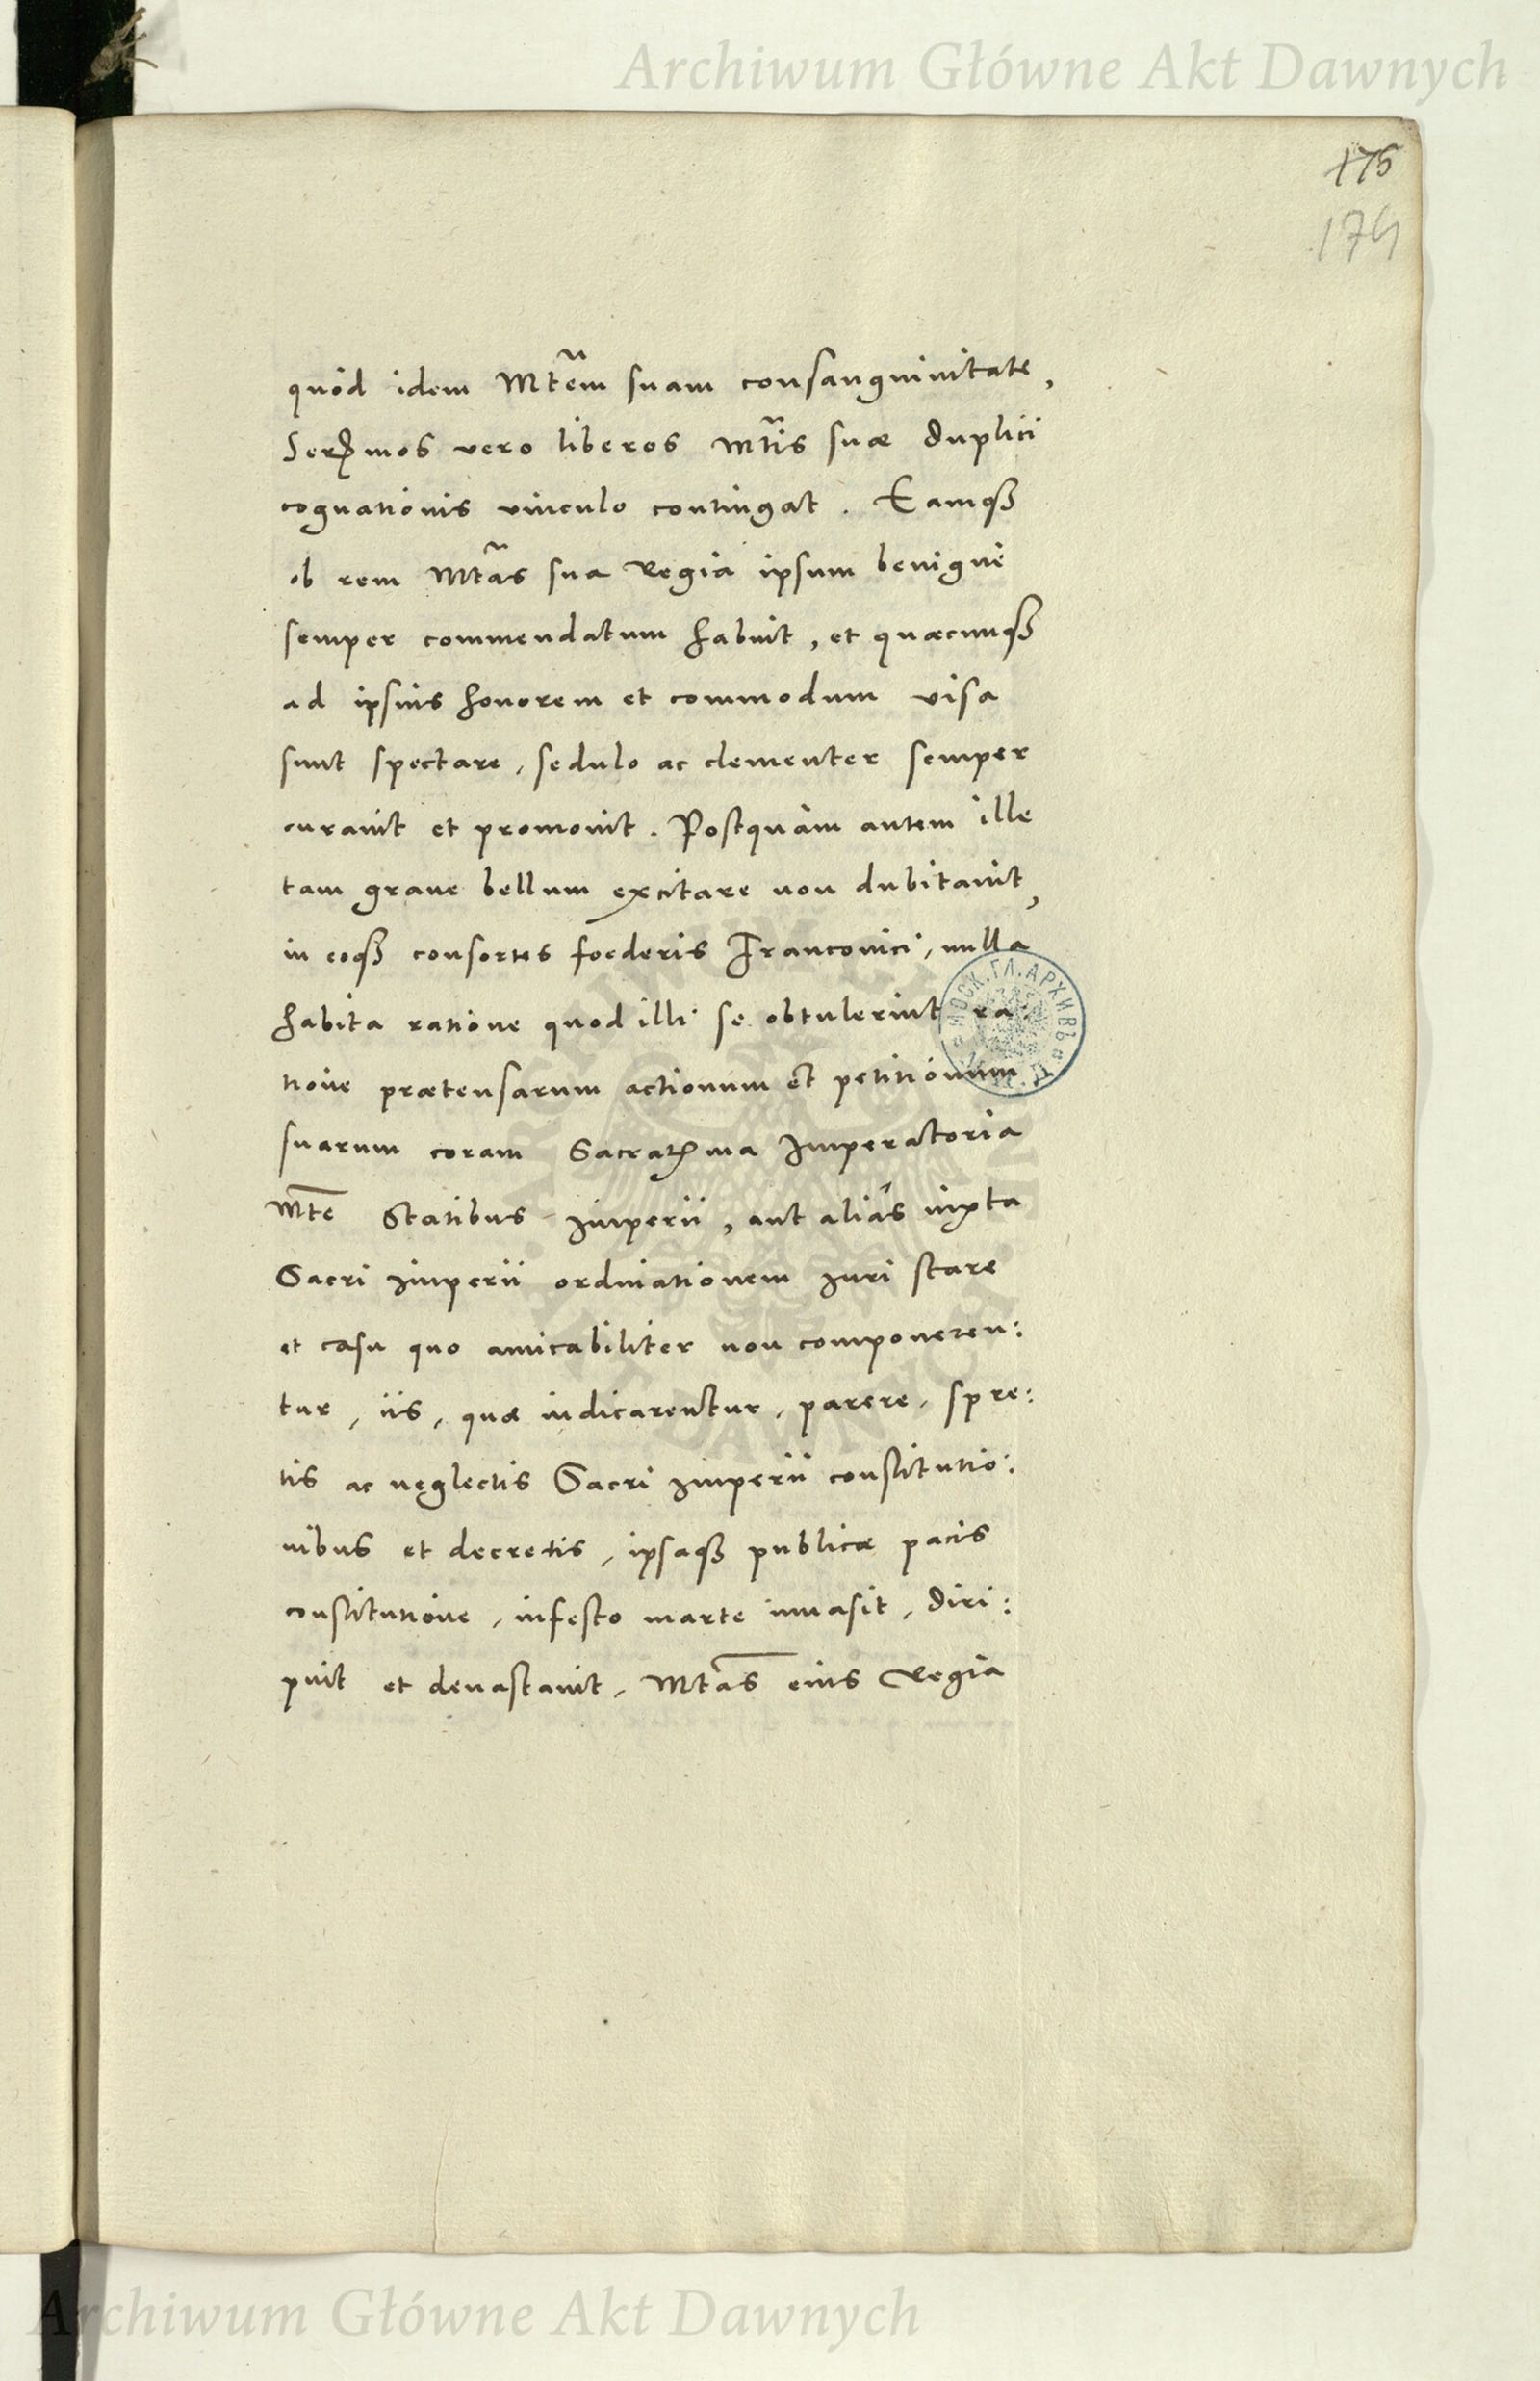 Archiwum Główne Akt Dawnych
175
174
quòd idem Mtem suam consanguinitate,
Serꝫmos vero liberos Mtis suæ duplici
cognationis vinculo contingat. Eamqꝫ
ob rem Mtas sua Regia ipsum benignè
semper commendatum habuit, et quæcunqꝫ
ad ipsius honorem et commodum visa
sunt spectare, sedulo ac clementer semper
curauit et promouit. Postquàm autem ille
tam graue bellum excitare non dubitauit,
in eosqꝫ consortes foederis Franconici, nulla
habita ratione quod illi se obtulerint ra:
tione prætensarum actionum et petitionum
suarum coram Sacratꝫma Imperatoria
Mte Statibus Imperii, aut aliàs iuxta
Sacri Imperii ordinationem Iuri stare
et casu quo amicabiliter non componeren:
tur, iis, quæ iudicarentur, parere, spre:
tis ac neglectis Sacri Imperii constitutio:
nibus et decretis, ipsaqꝫ publicæ pacis
constitutione, infesto marte inuasit, diri:
puit et deuastauit, Mtas eius Regia
МОСК. ГЛ. АРХИВЪ
Archiwum Główne Akt Dawnych